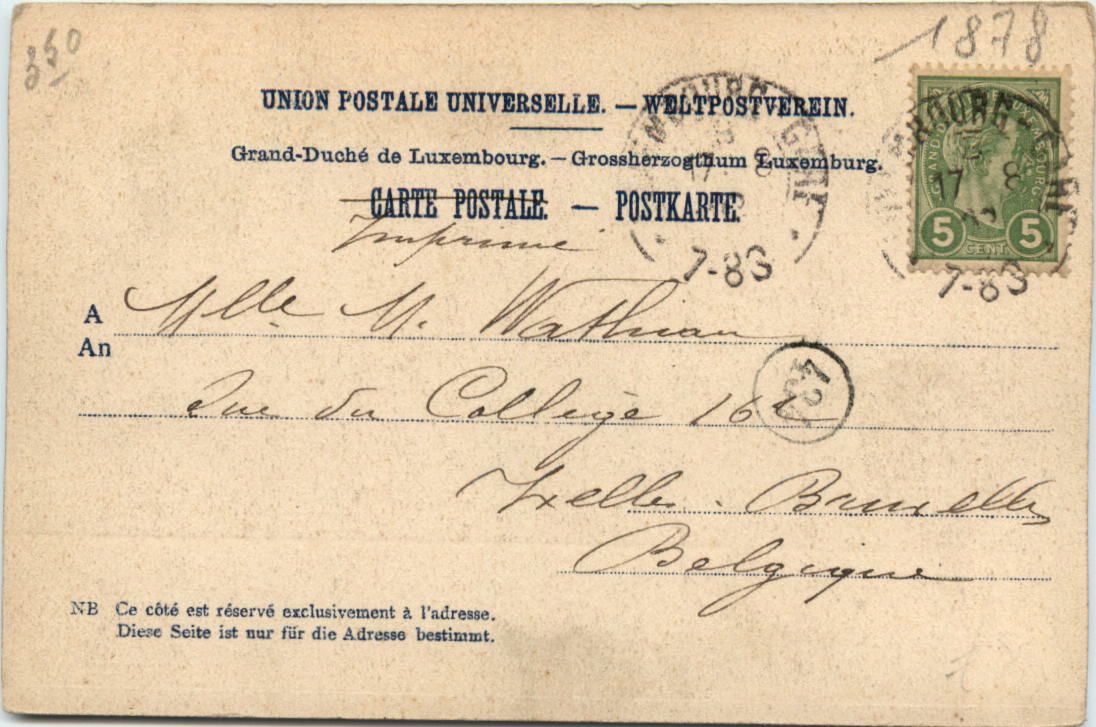 350
1878
UNION POSTALE UNIVERSELLE. — WELTPOSTVEREIN.
Grand-Duché de Luxembourg. — Grossherzogthum Luxemburg.
CARTE POSTALE. — POSTKARTE.
Imprimé
17 8
7-8S
17 8
7-8S
5 CENT. 5
A Mlle M. Wathian
An
Rue du Collège 162
Ixelles - Bruxelles
Belgique
NB Ce côté est réservé exclusivement à l'adresse.
Diese Seite ist nur für die Adresse bestimmt.